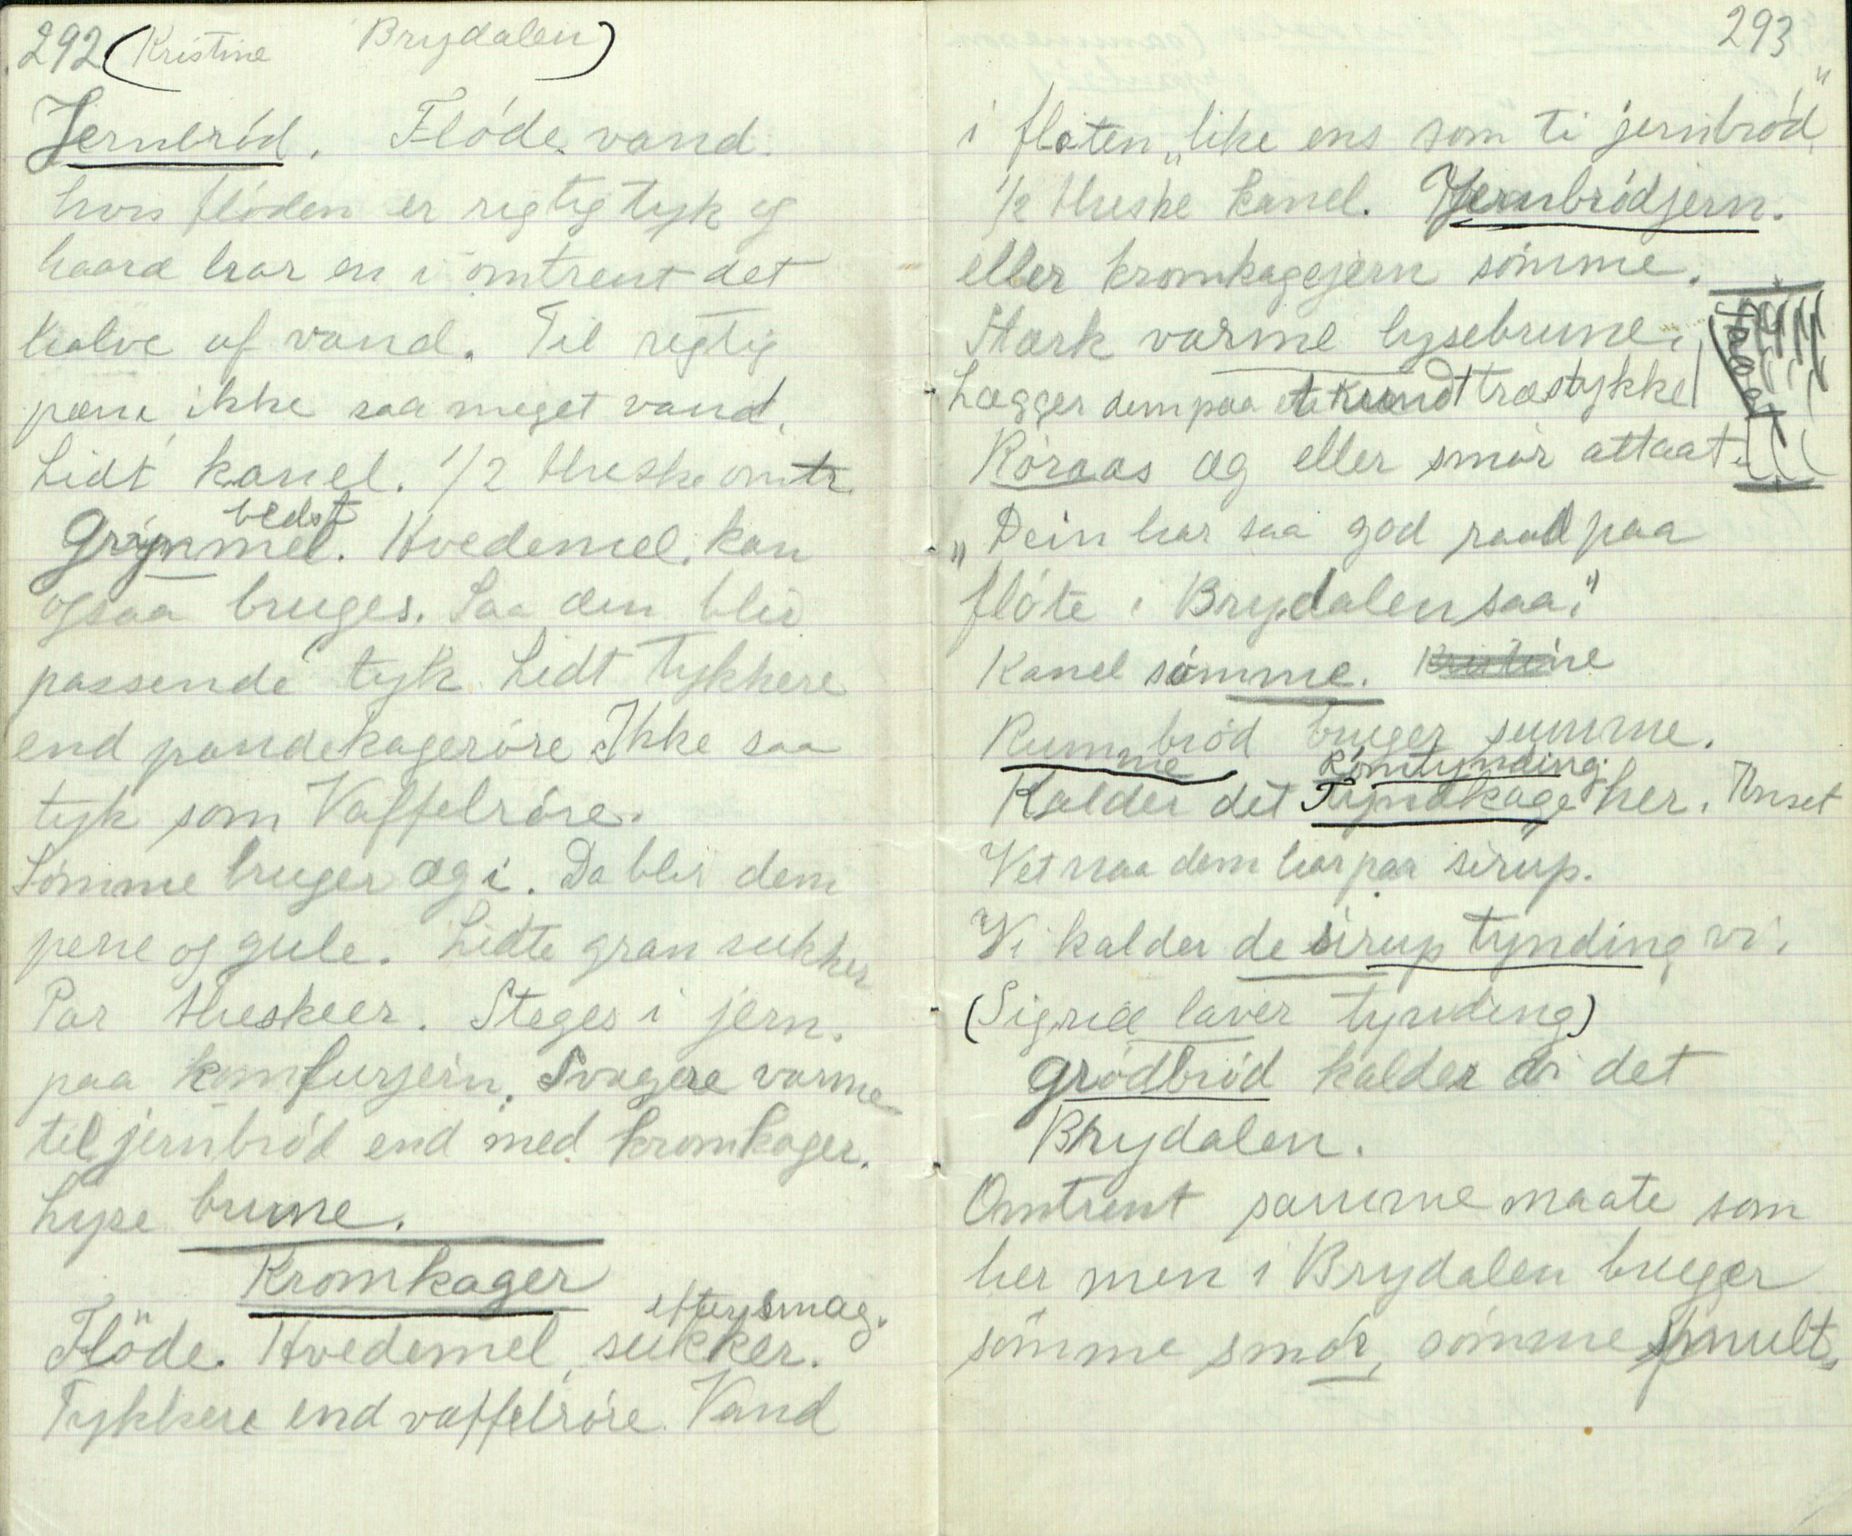 292 (Kristine Brydalen)
Jernbröd. Flöde. vand.
hvis flöden er rigtig tyk og
haard har en i omtrent det
halve af vand. Til rigtig
pene ikke saa meget vand.
Lidt kanel. 1/2 theske omtr.
bedst
Grynmel. Hvedemel. kan
ogsaa bruges. Saa den blir
passende tyk Lidt tykkere
end pandekageröre Ikke saa
tyk som Vaffelröre.
Sömme bruger æg i. Da blir dem
pene og gule. Lidte gran sukker
Par theskeer. Steges i jern.
paa komfurjern. Svagere varme
til jernbröd end med kromkager.
Lyse brune.
Kromkager
eftersmag.
Flöde. Hvedemel, sukker.
Tykkere end vaffelröre. Vand
293
i fløten „like ens som ti jernbröd"
1/2 theske kanel. Jernbrödjern.
eller kromkagejern sömme.
Stærk varme lysebrune.
Lægger dem paa et rundt træstykke
Röraas æg eller smör attaat.
„Dein har saa god raad paa
flöte i Brydalen saa."
Kanel sömme. Kristine
Rumme bröd bruger summe.
Römtynding.
Kalder det Tyndkage her. Unset
Vet naa dem har paa sirup.
Vi kalder de sirup tynding vi.
(Sigrid laver tynding)
grödbröd kalder di det
Brydalen.
Omtrent samme maate som
her men i Brydalen bruger
sömme smör, sömme smult.